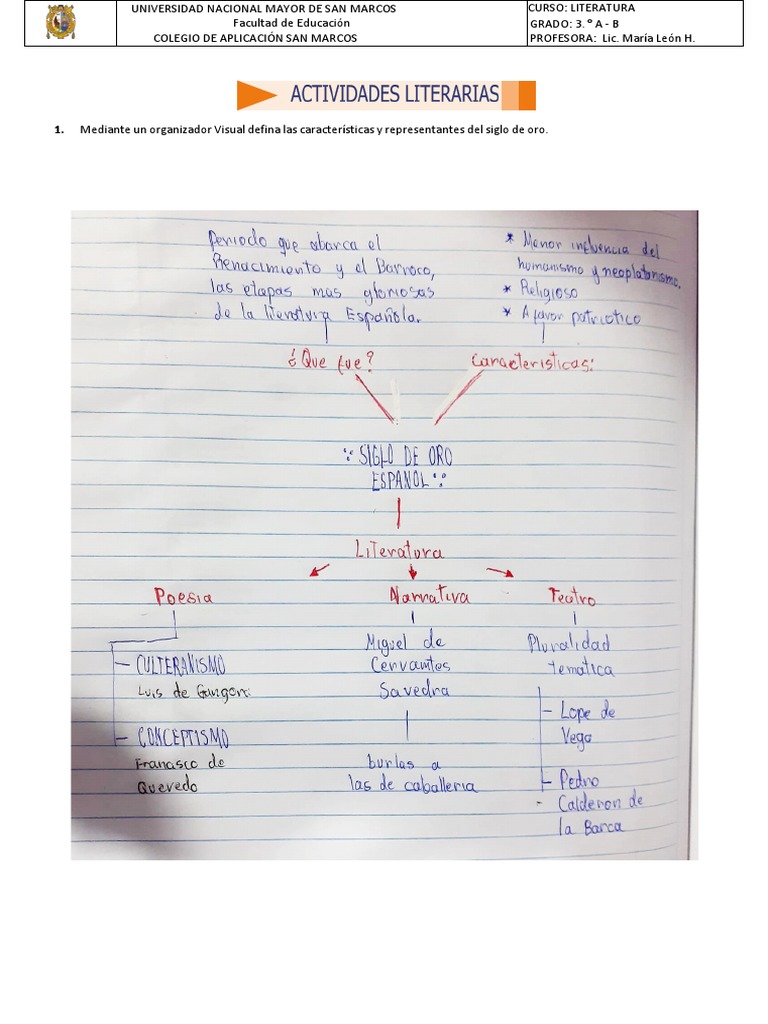 UNIVERSIDAD NACIONAL MAYOR DE SAN MARCOS
Facultad de Educación
COLEGIO DE APLICACIÓN SAN MARCOS
CURSO: LITERATURA
GRADO: 3.° A - B
PROFESORA: Lic. María León H.
ACTIVIDADES LITERARIAS
1. Mediante un organizador Visual defina las características y representantes del siglo de oro.
Periodo que abarca el
Renacimiento y el Barroco,
las etapas mas gloriosas
de la literatura Española.
* Menor influencia del
humanismo y neoplatonismo.
* Religioso
* A favor patriotico
¿Que fue?
Caracteristicas:
SIGLO DE ORO
ESPAÑOL
Literatura
Poesia
Narrativa
Teatro
- CULTERANISMO
Luis de
- CONCEPTISMO
Francisco de
Quevedo
Miguel de
Cervantes
Savedra
burlas a
las de caballeria
Pluralidad
tematica
- Lope de
Vega
- Pedro
Calderon de
la Barca